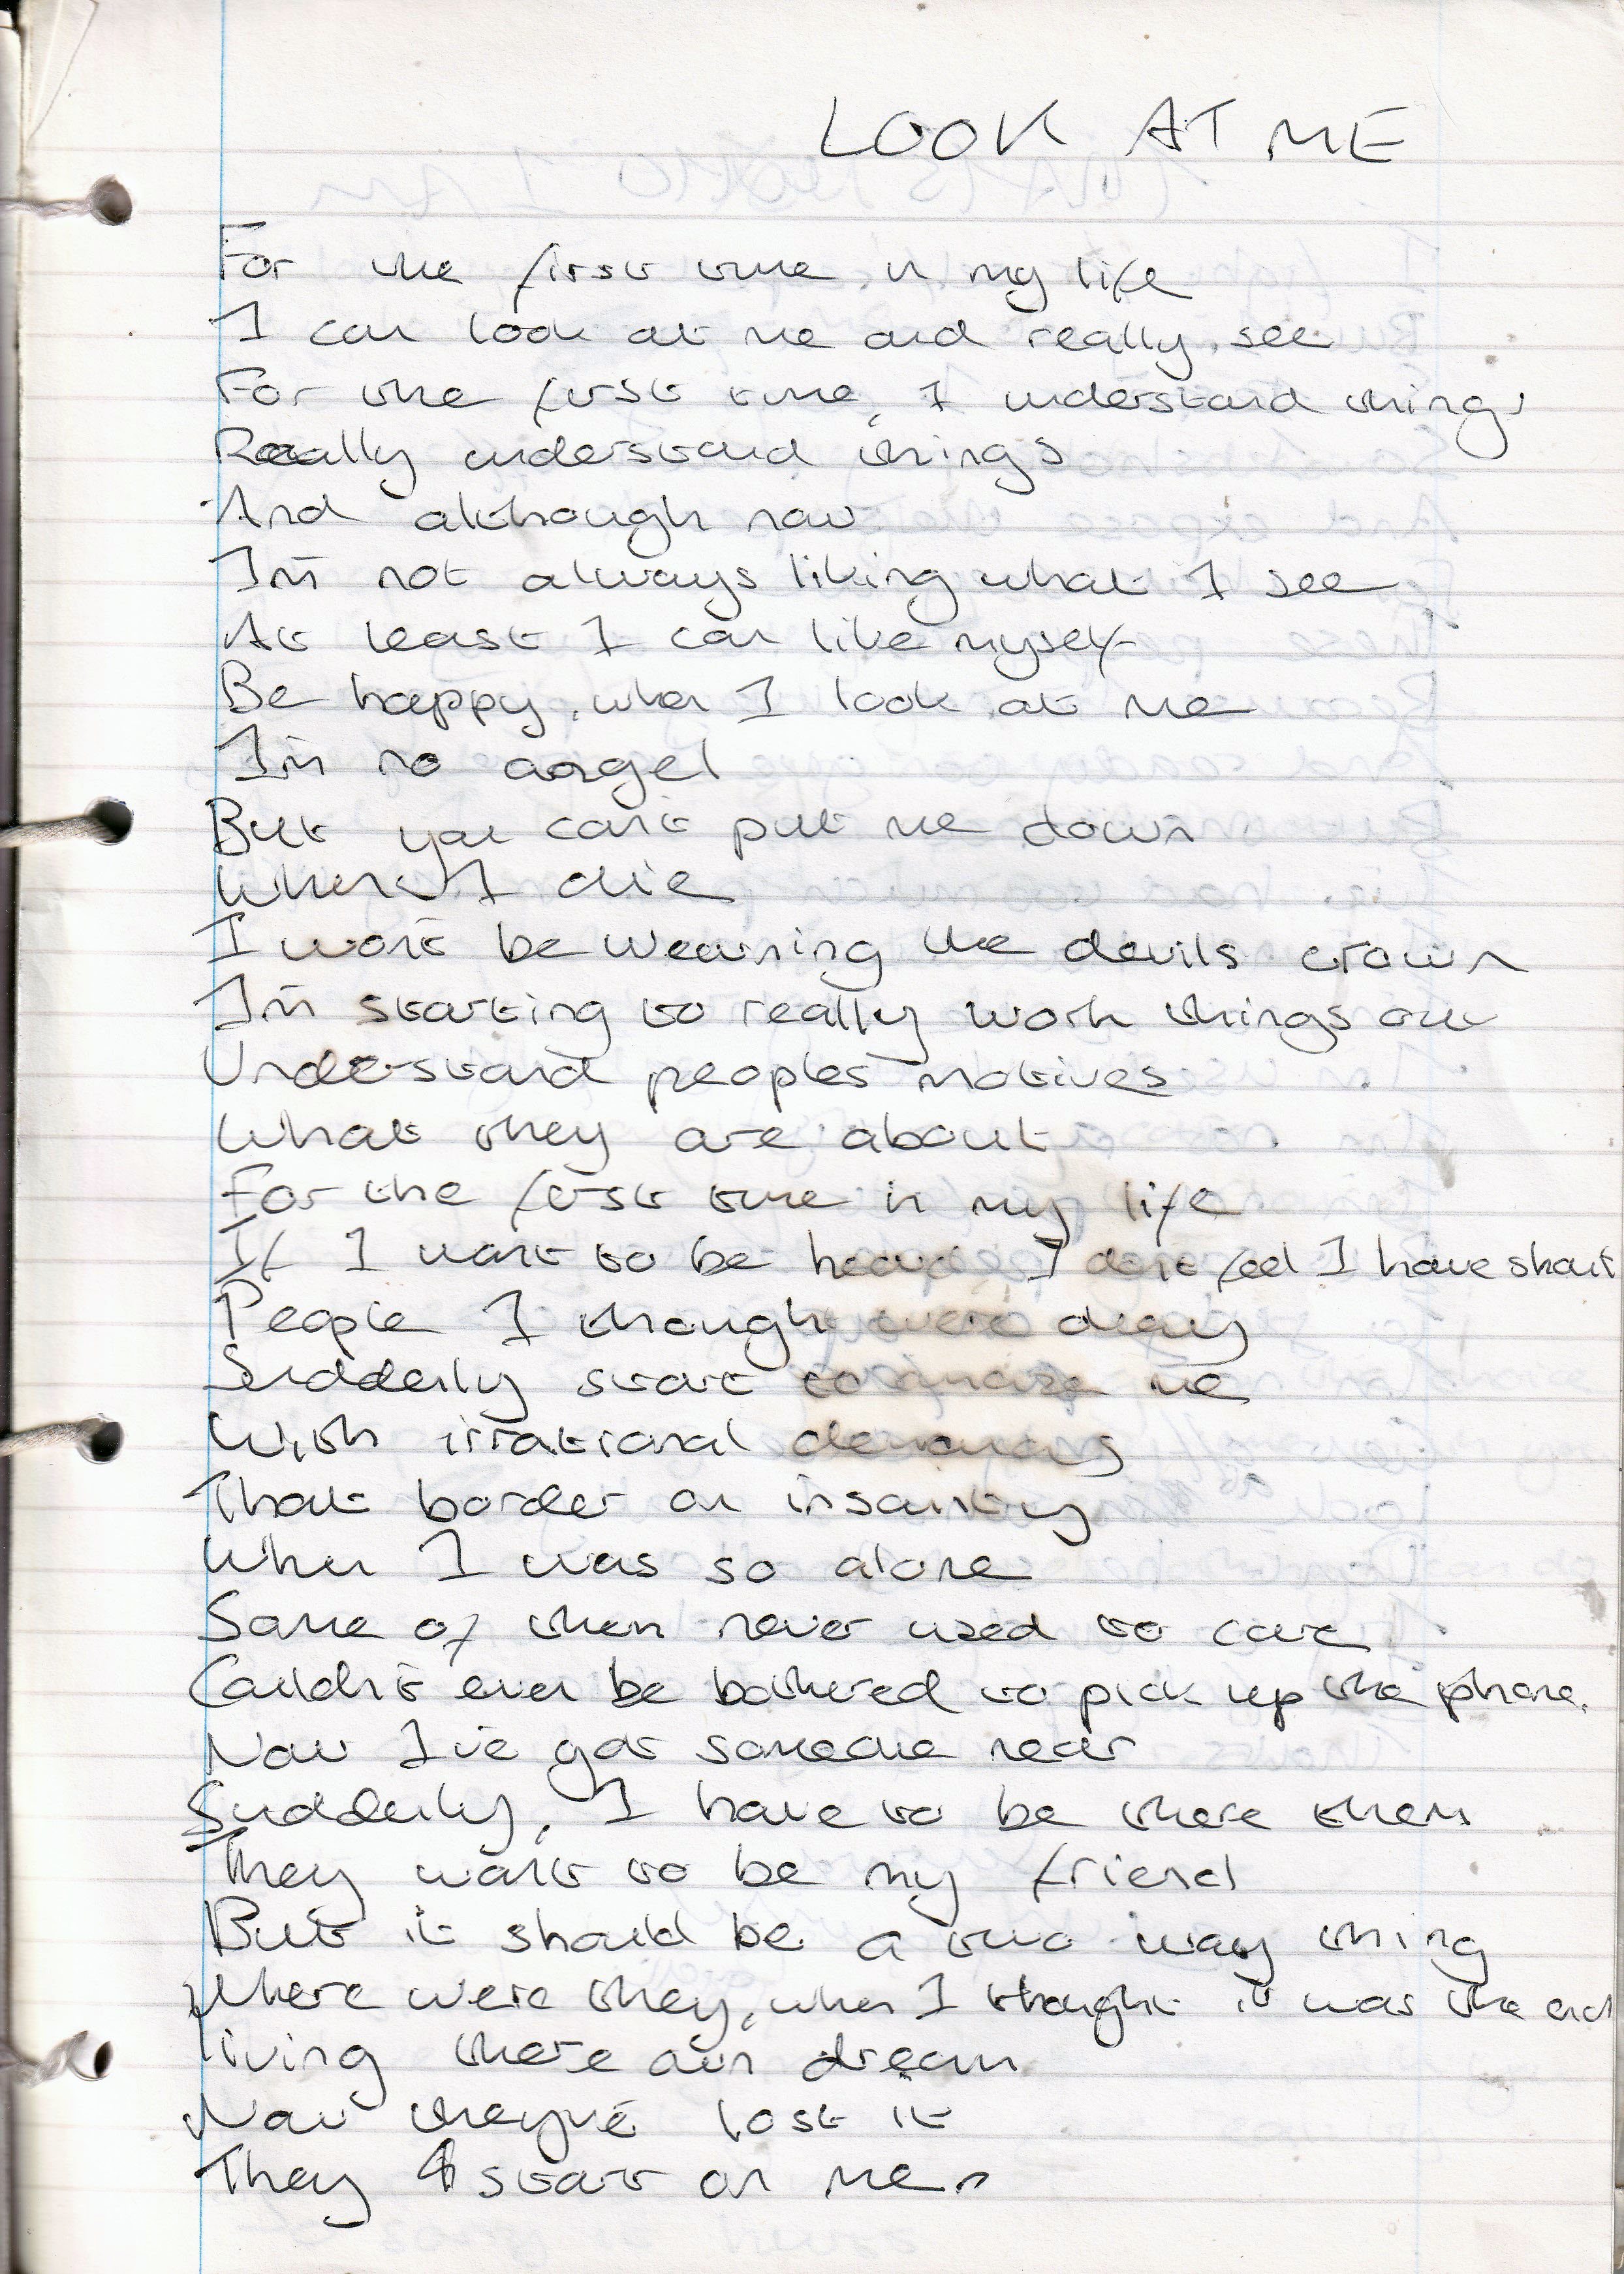 LOOK AT ME
For the first time in my life
I can look at me and really, see
For the first time, I understand things
Really understand things
And although now
I'm not always liking what I see
At least I can like myself
Be happy, when I look at me
I'm no angel
But you can't put me down
When I die
I won't be wearning the devils crown
I'm starting to really work things out
Understand peoples motives
What they are about
For the first time in my life
If I want to be heard, I don't feel I have shout
People I though were okay
Suddenly start to me
With irrational demands
That border on insanity
When I was so alone
Some of them never used to care
Couldn't even be bothered to pick up the phone.
Now I've got someone near
Suddenly, I have to be there them
They want to be my friend
But it should be a two way thing
Where were they, when I thought it was the end
living there own dream
Now they've lost it
They start on me